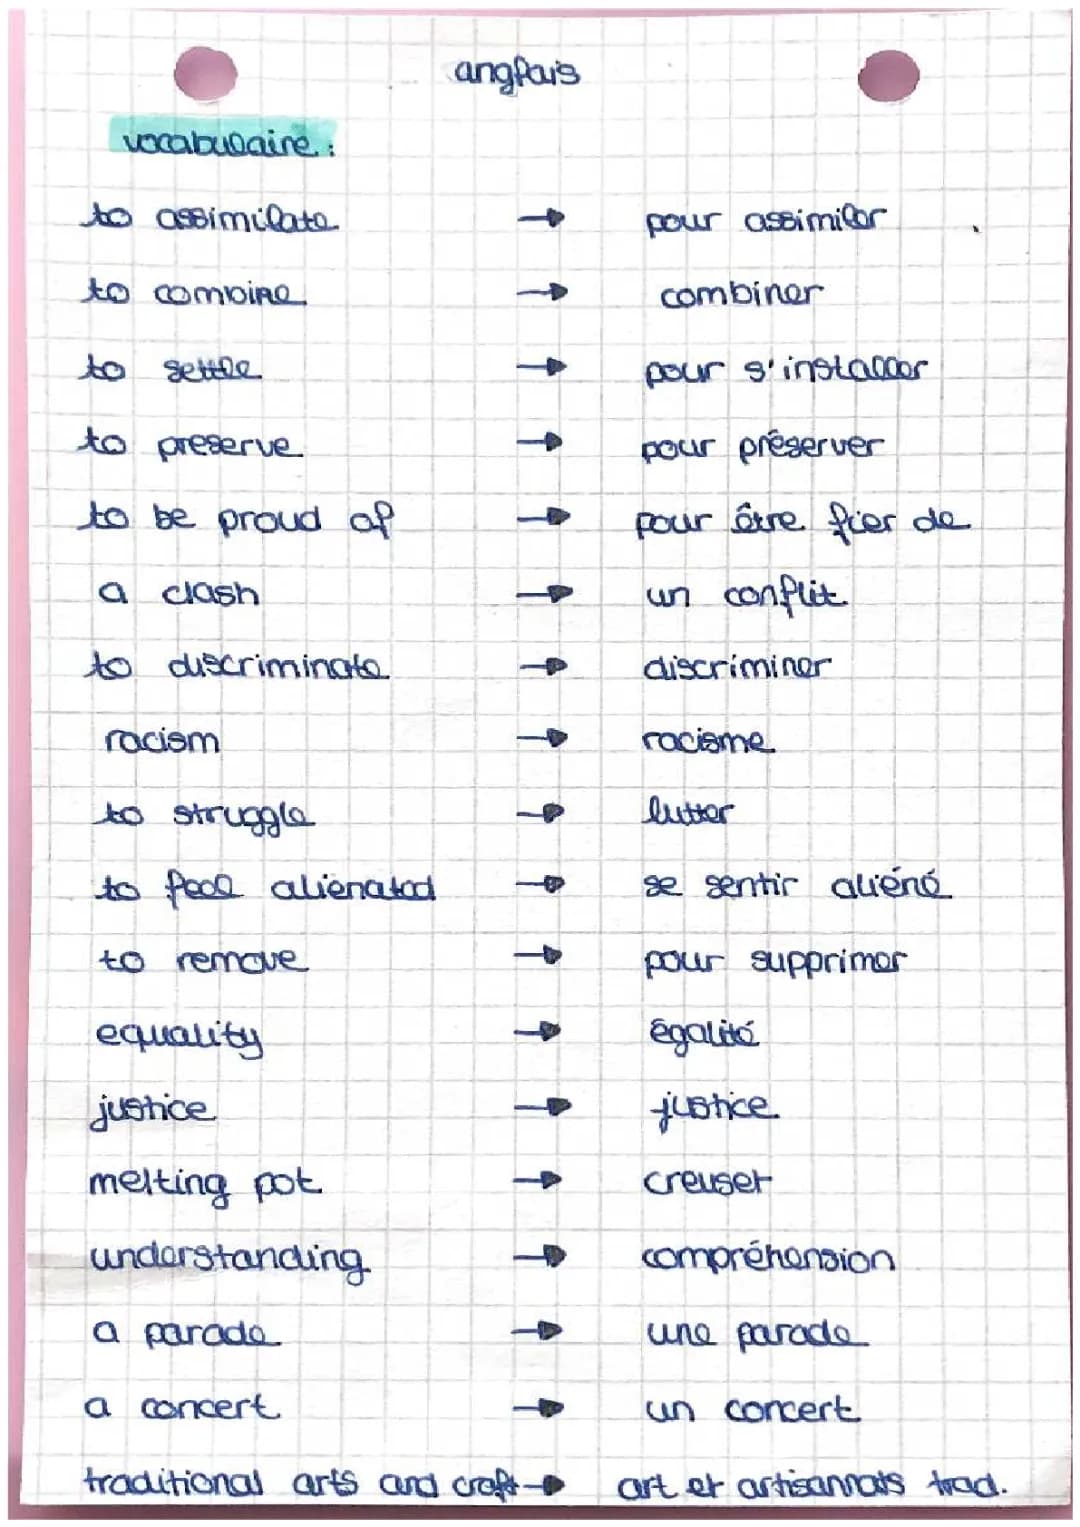 anglais
vocabulaire :
to assimilate → pour assimiler
to combine → combiner
to settle → pour s'installer
to preserve → pour préserver
to be proud of → pour être fier de
a clash → un conflit
to discriminate → discriminer
racism → racisme
to struggle → lutter
to feel alienated → se sentir aliéné
to remove → pour supprimer
equality → égalité
justice → justice
melting pot → creuset
understanding → compréhension
a parade → une parade
a concert → un concert
traditional arts and craft → art et artisannats trad.